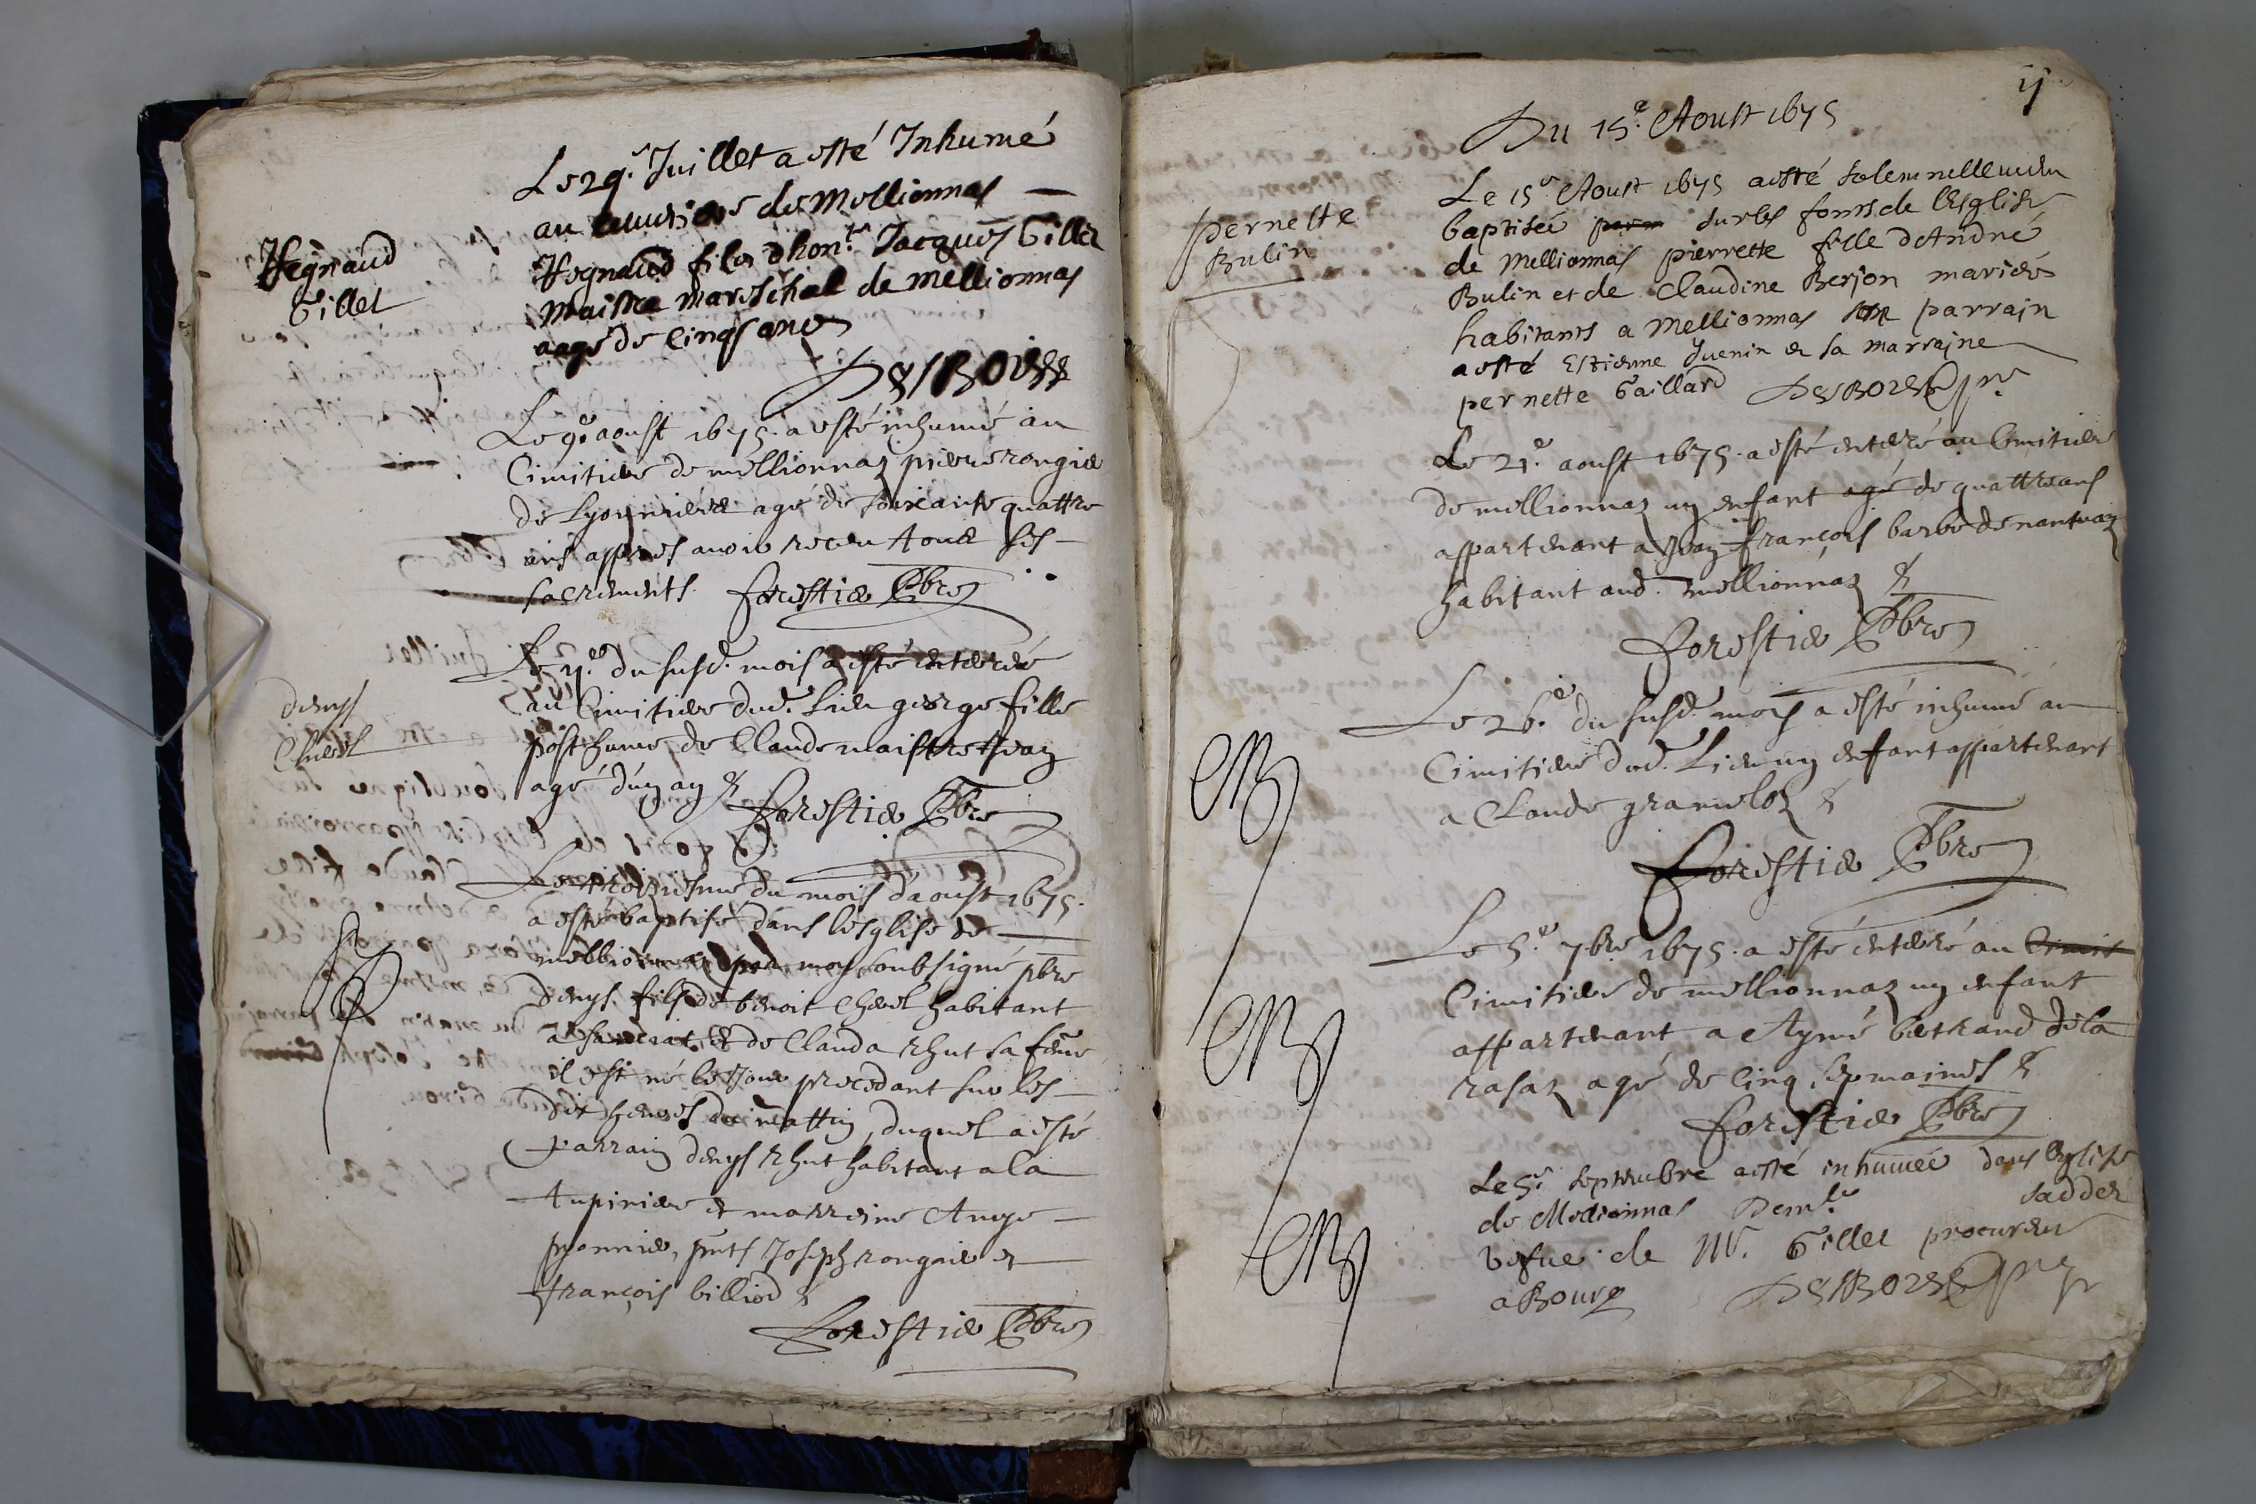 Le 29.e Juillet a esté Inhumé
au de Mellionnas
Hegnaud
Gillet
Hegnaud filz d hon.te Jacques Gillet
Maistre mareschal de Mellionnas
aagé de Cinqs ans
DESBOIS
Le 9.e aoust 1675. a esté inhumé au
Cimitiere de mellionnaz pierre rongier
de Lyonniere agé de soixante quattre
ans appres avoir receu tous ses
sacrements. forestier Pbre
Le du susd. mois a esté enterrée
au Cimitiere dud. Lieu george fille
posthume de Claude maistre Jean
agé d'un an &
forestier Pbre
denys
Chevel
Le troiziesme du mois d'aoust 1675.
a esté baptisé dans lesglise de
mellionnaz par moy soubsigné pbre
Denys filz de benoit Chevel habitant
a et de Clauda rhut sa feme
il est né le Jour precedant sur les
dix heures du mattin, duquel a esté
parrain denys rhut habitant a la
tupiniere et marreine Ange
pnts Joseph rongier et
françois billiod &
forestier Pbre
ij
Du 15.e Aoust 1675
Pernette
Bulin
Le 15e Aoust 1675 aesté solemnellemen
baptiseé sur les fonts de lEsglise
de Mellionnas pierrette fille d'André
Bulin et de Claudine Berjon mariés
habitants a Mellionnas parrain
aesté Estienne Juenin et sa marrajne
pernette Gaillard DESBOIS
Le 21.e aoust 1675. a esté enterré au Cimitiere
de mellionnaz un enfant agé de quattre ans
appartenant a Jean françois barbe de nantuaz
habitant aud. mellionnaz &
forestier Pbre
Le 26.e du susd. mois a esté inhumé au
Cimitiere dud. Lieu un enfant appartenant
a Claude &
forestier Pbre
Le 5.e 7bre 1675. a esté enterré au Cimit
Cimitiere de mellionnaz un enfant
appartenant a Aymé bertrand de la
rasaz agé de Cinq sepmaines &
forestier Pbre
Le 5.e septembre aesté inhumeé dans lEglise
de Mellionnas Dem.le
vefue de Mr. Gillet procureur
a Bourg DESBOIS